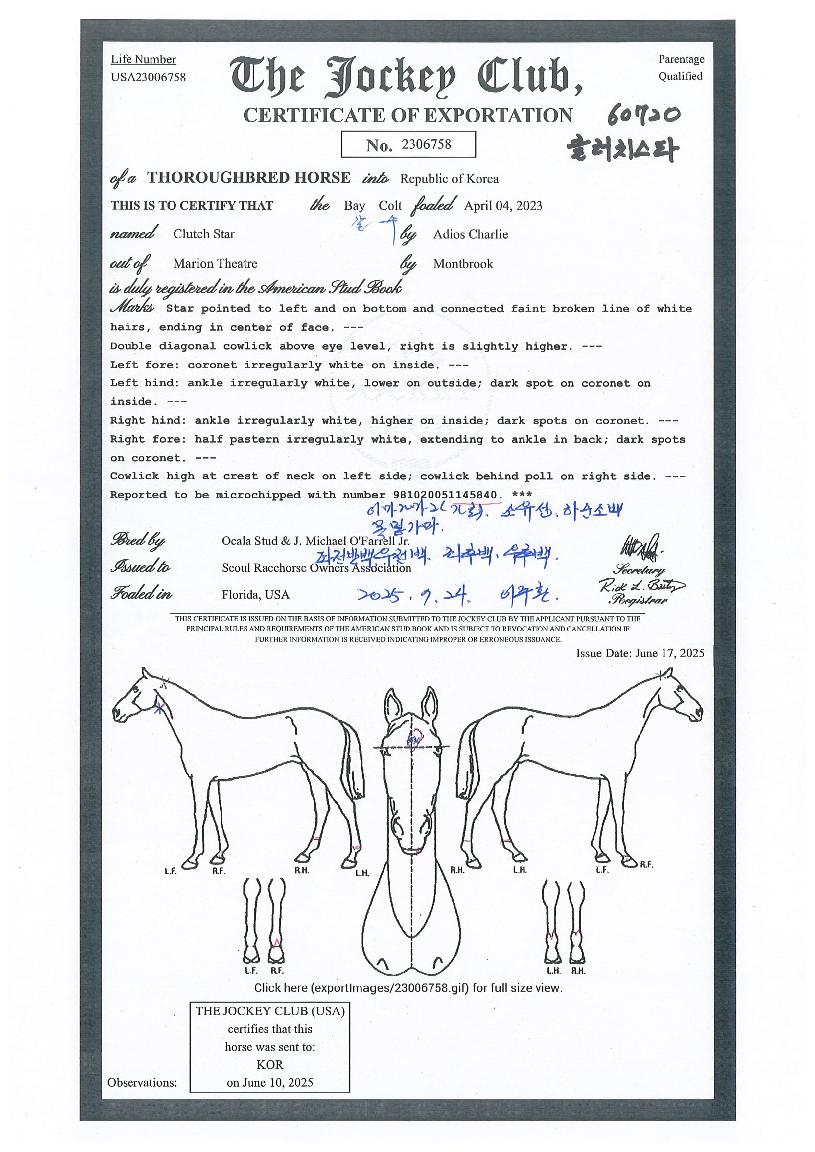 Life Number
USA23006758
The Jockey Club,
Parentage
Qualified
CERTIFICATE OF EXPORTATION
60720
클러치스타
No. 2306758
of a THOROUGHBRED HORSE into Republic of Korea
THIS IS TO CERTIFY THAT the Bay Colt foaled April 04, 2023
named Clutch Star by Adios Charlie
out of Marion Theatre by Montbrook
is duly registered in the American Stud Book
Marks Star pointed to left and on bottom and connected faint broken line of white
hairs, ending in center of face. ---
Double diagonal cowlick above eye level, right is slightly higher. ---
Left fore: coronet irregularly white on inside. ---
Left hind: ankle irregularly white, lower on outside; dark spot on coronet on
inside. ---
Right hind: ankle irregularly white, higher on inside; dark spots on coronet. ---
Right fore: half pastern irregularly white, extending to ankle in back; dark spots
on coronet. ---
Cowlick high at crest of neck on left side; cowlick behind poll on right side. ---
Reported to be microchipped with number 981020051145840. ***
Bred by Ocala Stud & J. Michael O'Farrell Jr.
Issued to Seoul Racehorse Owners Association
Secretary
Foaled in Florida, USA
2025. 9. 24.
Registrar
THIS CERTIFICATE IS ISSUED ON THE BASIS OF INFORMATION SUBMITTED TO THE JOCKEY CLUB BY THE APPLICANT PURSUANT TO THE
PRINCIPAL RULES AND REQUIREMENTS OF THE AMERICAN STUD BOOK AND IS SUBJECT TO REVOCATION AND CANCELLATION IF
FURTHER INFORMATION IS RECEIVED INDICATING IMPROPER OR ERRONEOUS ISSUANCE.
Issue Date: June 17, 2025
L.F. R.F. R.H. L.H. R.H. L.H. L.F. R.F.
L.F. R.F. L.H. R.H.
Click here (exportImages/23006758.gif) for full size view.
THE JOCKEY CLUB (USA)
certifies that this
horse was sent to:
KOR
Observations: on June 10, 2025